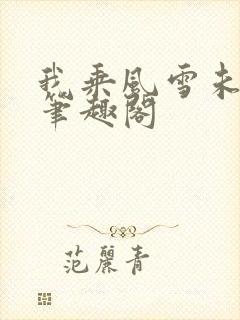 我乘风雪未
笔趣阁
范丽青